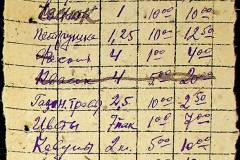 Чеснок 1 10 00 10 00
Петрушка 1,25 10 00 12 50
Фасоль 4 1 00 4 00
4 5 00 20
Газон. трава 2,5 1 00 2 50
Цветы 7 пак 1 00 7 00
2 5 00 10 00